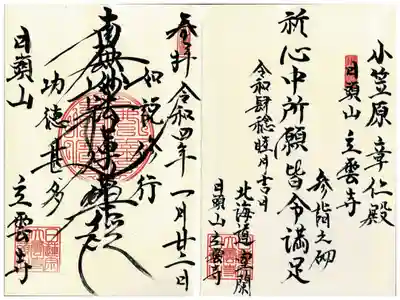 小笠原章仁殿
日頭山 立雲寺
参詣之砌
祈心中所願皆令満足
令和肆稔睦月吉日
北海道室蘭
日頭山 立雲寺
参拝 令和四年一月廿二日
如説修行
南無妙法蓮華経
功徳甚多
日頭山 立雲寺